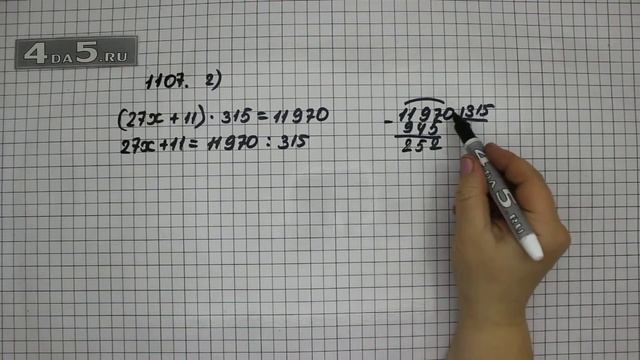 4ДА5.RU
1107. 2)
(27x+11)·315=11970
27x+11=11970:315
-11970 315
945
252
4ДА5.RU